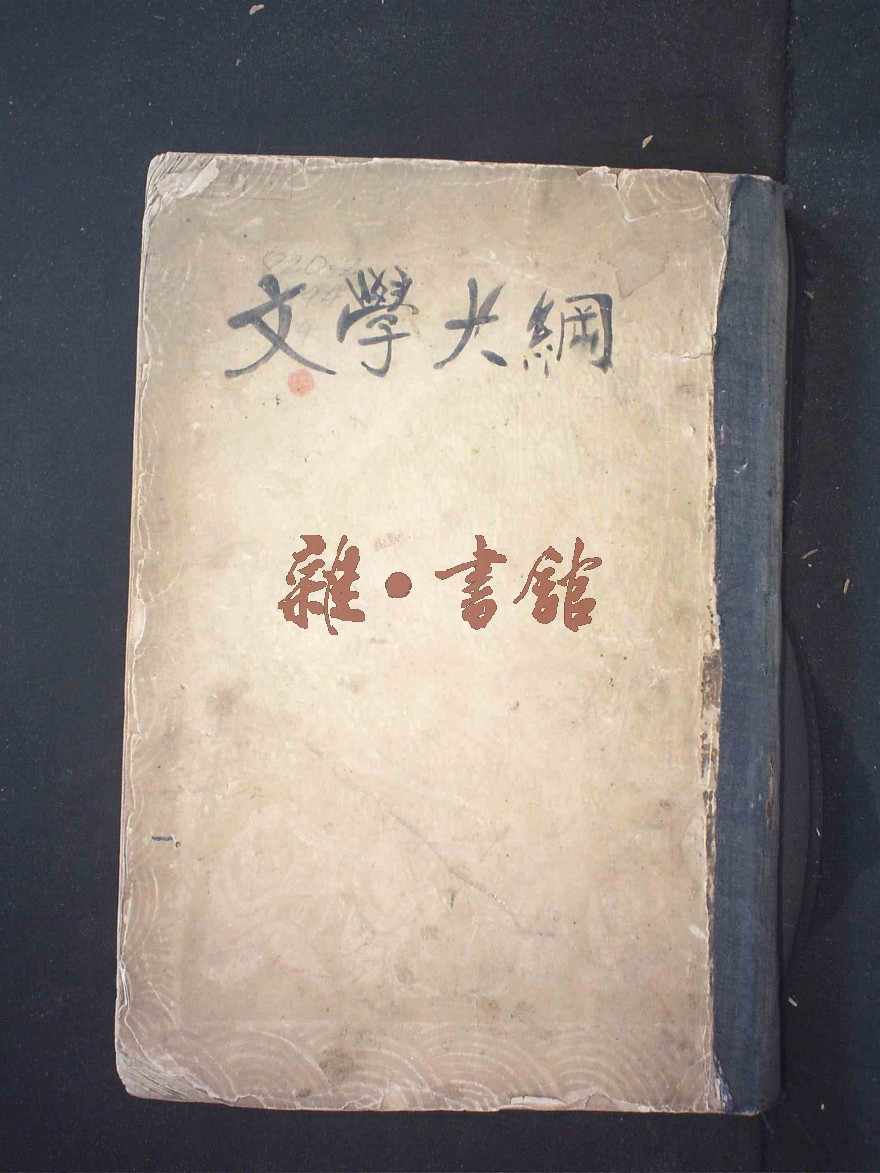 文學大綱
雜·書館